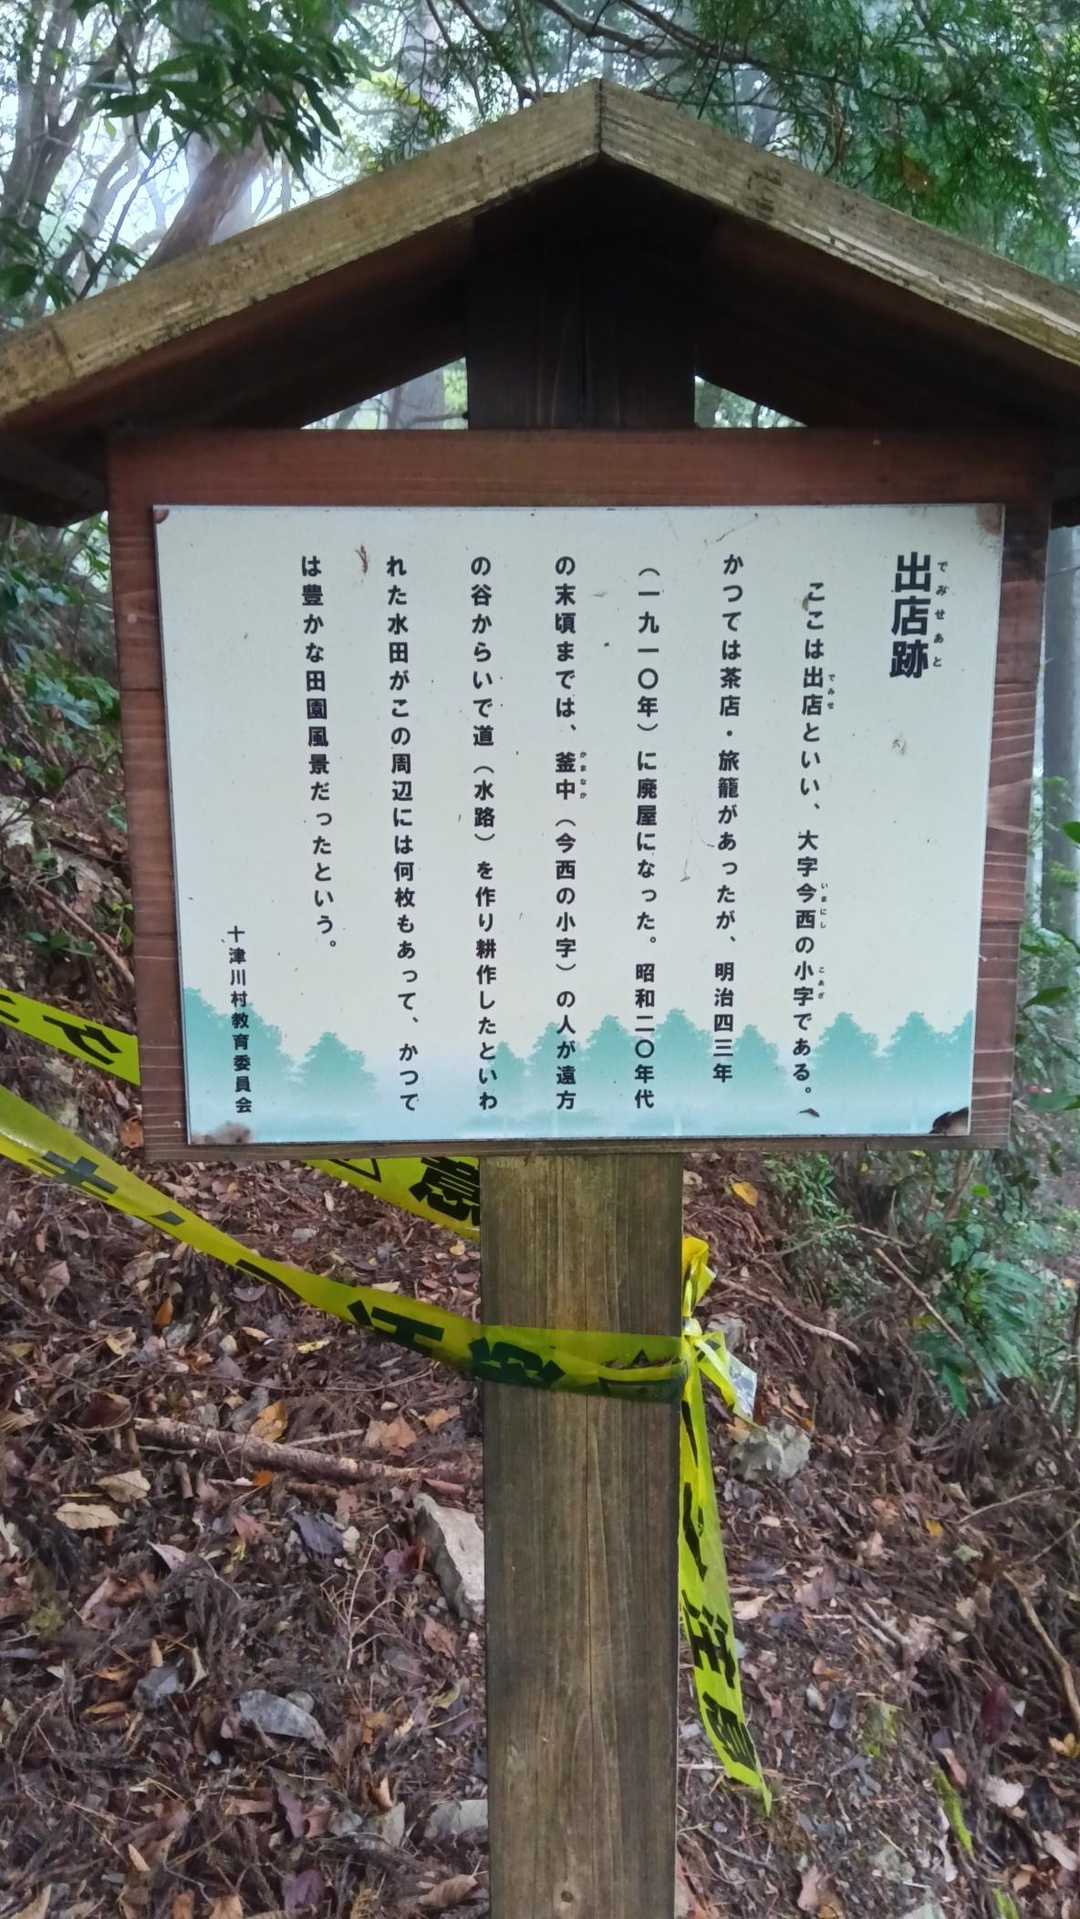 出店跡
でみせあと
ここは出店といい、大字今西の小字である。
でみせ
いまにし
こあざ
かつては茶店・旅籠があったが、明治四三年
(一九一〇年)に廃屋になった。昭和二〇年代
の末頃までは、釜中(今西の小字)の人が遠方
かまなか
の谷からいで道(水路)を作り耕作したといわ
れた水田がこの周辺には何枚もあって、かつて
は豊かな田園風景だったという。
十津川村教育委員会
意
注意